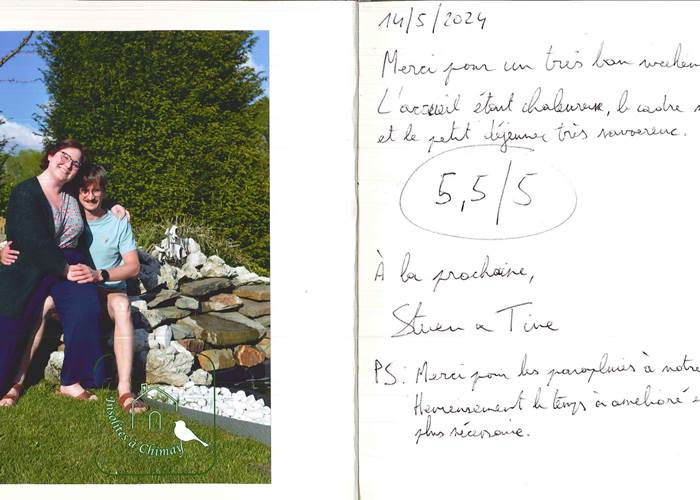 14/5/2024
Merci pour un très bon weeken
L'accueil étant chaleureux, le cadre
et le petit déjeuner très savoureux.
5,5/5
À la prochaine,
Steven & Tine
PS: Merci pour les parapluies à notre
Heureusement le temps a amélioré e
plus nécessaire.
Insolites à Chimay